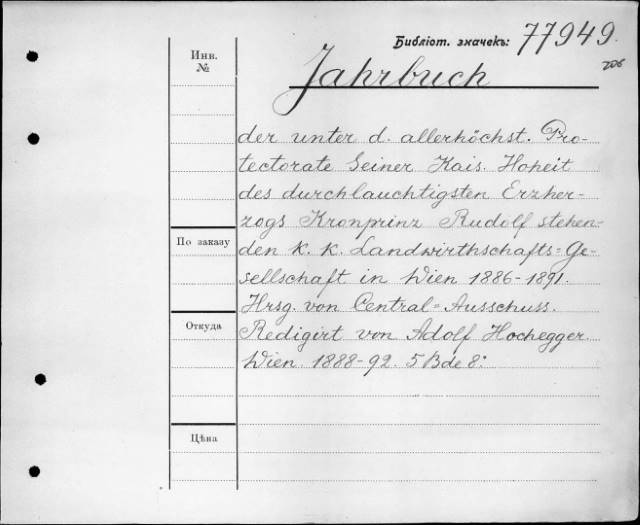 Библіот. значекъ: 77949.
206
Инв.
№
Jahrbuch
der unter d. allerhöchst. Pro-
tectorate Seiner Kais. Hoheit
des durchlauchtigsten Erzher-
zogs Kronprinz Rudolf stehen-
den k. k. Landwirthschafts=Ge-
sellschaft in Wien 1886-1891.
Hrsg. von Central=Ausschuss.
Redigirt von Adolf Hochegger
Wien. 1888-92. 5 Bde 8:
По заказу
Откуда
Цѣна